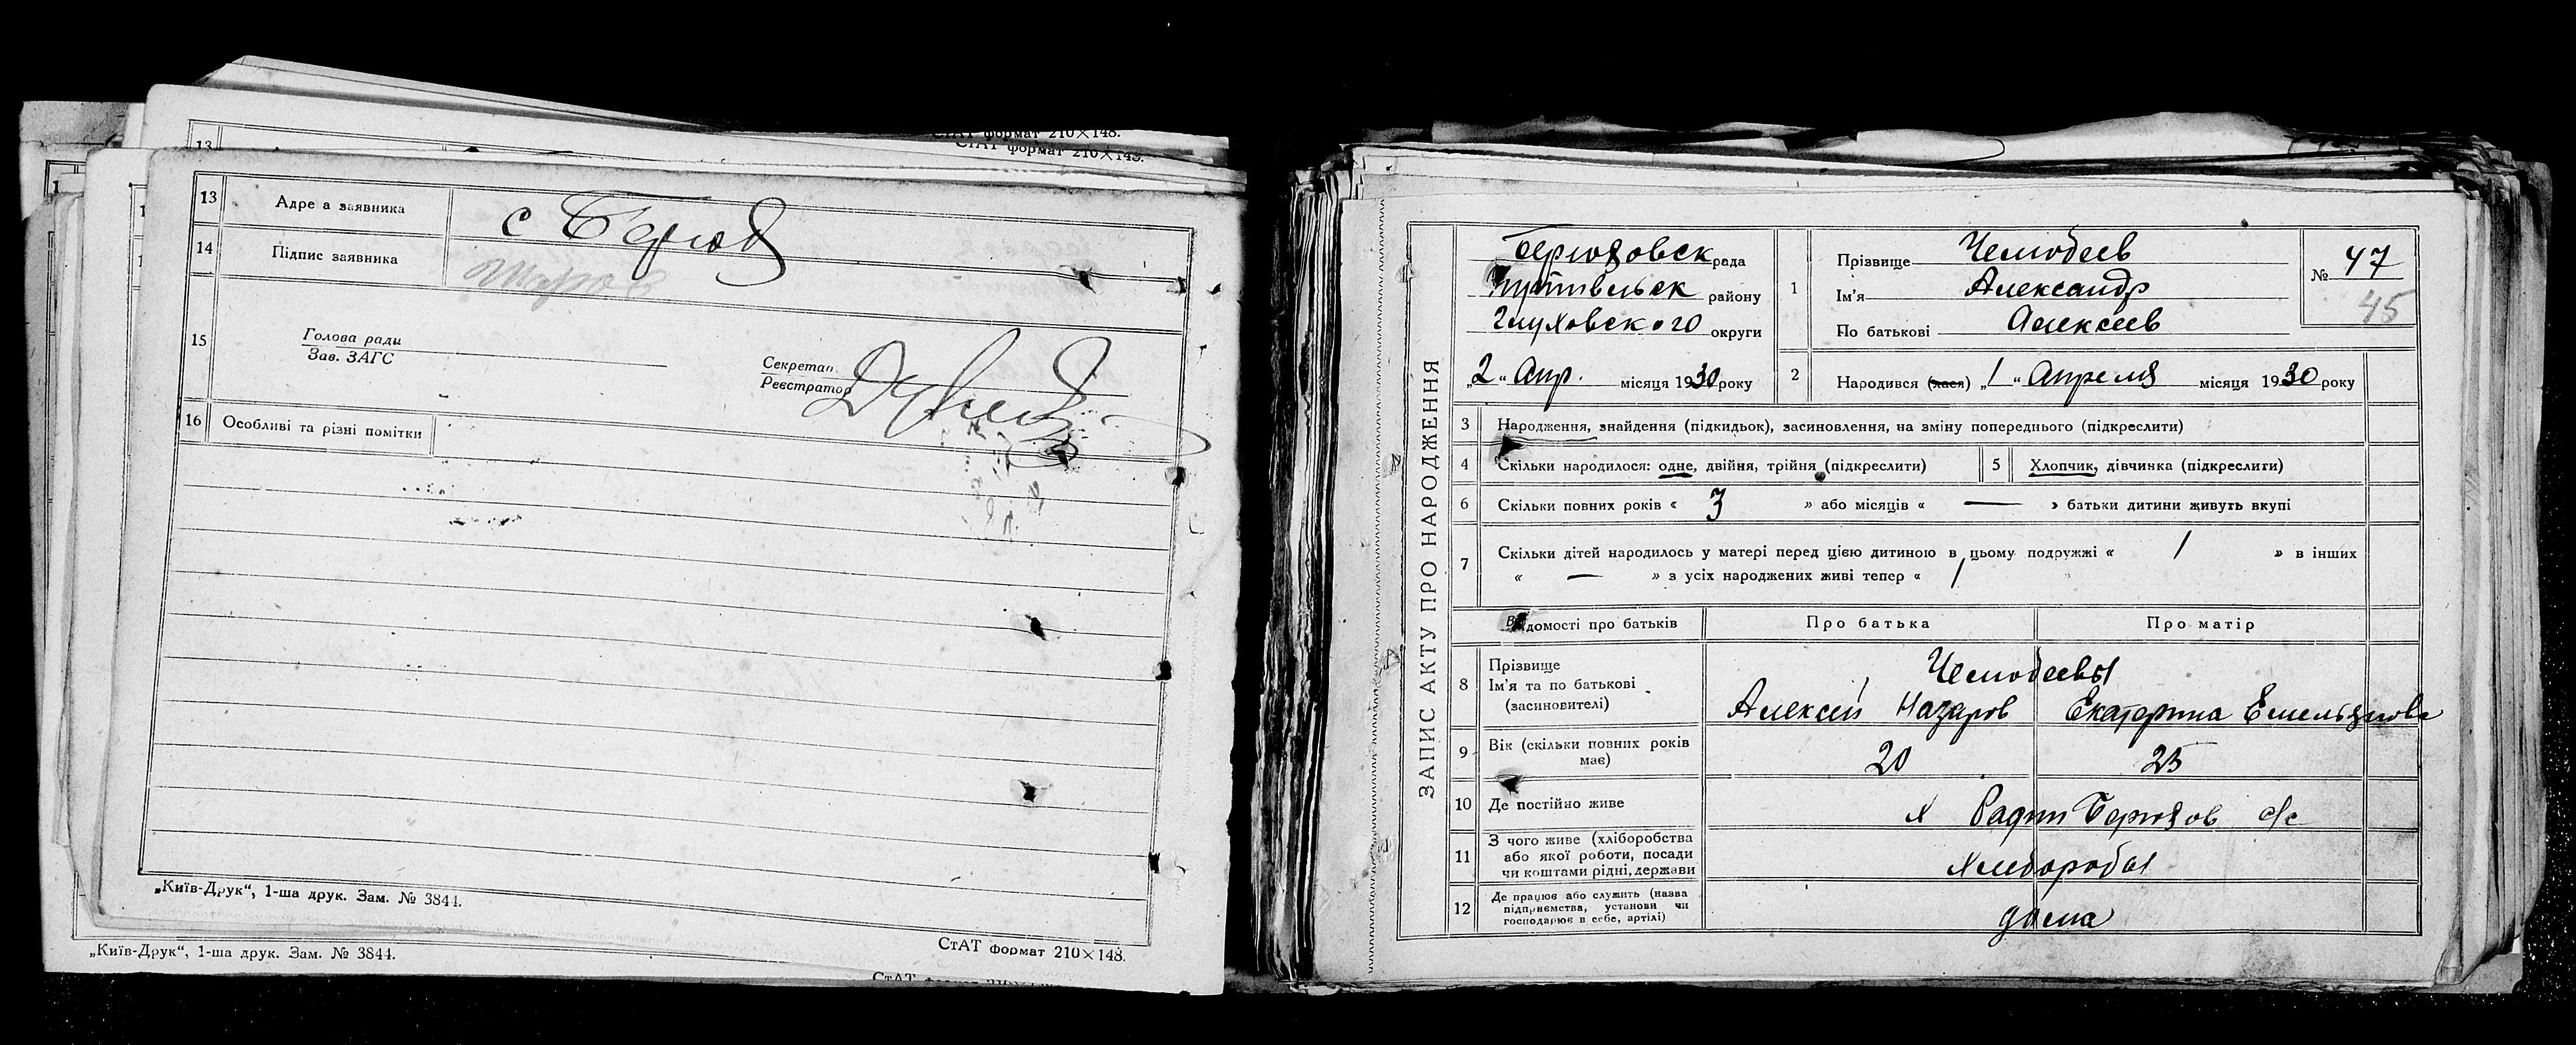 СтАТ формат 210×148.
СтАТ формат 210×148.
13
13 Адре а заявника с Берюх
14 Підпис заявника
15 Голова ради
Зав. ЗАГС
Секретар
Реєстратор
16 Особливі та різні помітки
„Київ-Друк“, 1-ша друк. Зам. № 3844.
„Київ-Друк“, 1-ша друк. Зам. № 3844.
СтАТ формат 210×148.
ЗАПИС АКТУ ПРО НАРОДЖЕННЯ
Берюховск рада
Путивльск району
Глуховского округи
„2“ Апр. місяця 1930 року
1 Прізвище Чемодеев
Ім'я Александр
По батькові Алексеев
№ 47
45
2 Народився (лася) „1“ Апреля місяця 1930 року
3 Народження, знайдення (підкидьок), засиновлення, на зміну попереднього (підкреслити)
4 Скільки народилося: одне, двійня, трійня (підкреслити) 5 Хлопчик, дівчинка (підкреслити)
6 Скільки повних років « 3 » або місяців « — » батьки дитини живуть вкупі
7 Скільки дітей народилось у матері перед цією дитиною в цьому подружжі « 1 » в інших
« — » з усіх народжених живі тепер « 1
Відомості про батьків Про батька Про матір
8 Прізвище
Ім'я та по батькові
(засиновителі)
Чемодеевы
Алексей Назаров Екатерина Емельянова
9 Вік (скільки повних років
має)
20 25
10 Де постійно живе х Берюхов с/с
11 З чого живе (хліборобства
або якої роботи, посади
чи коштами рідні, держави
Хлеборобы
12 Де працює або служить (назва
підприємства, установи чи
господарює в себе, артілі)
дома